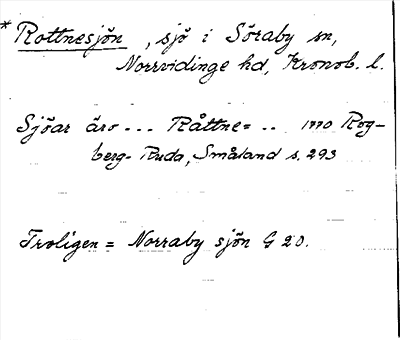 * Rottnesjön, sjö i Söraby sn,
Norrvidinge hd, Kronob. l.
Sjöar äro ... Råttne= .. 1770 Rog-
berg-Ruda, Småland s. 293
Troligen = Norraby sjön G 20.